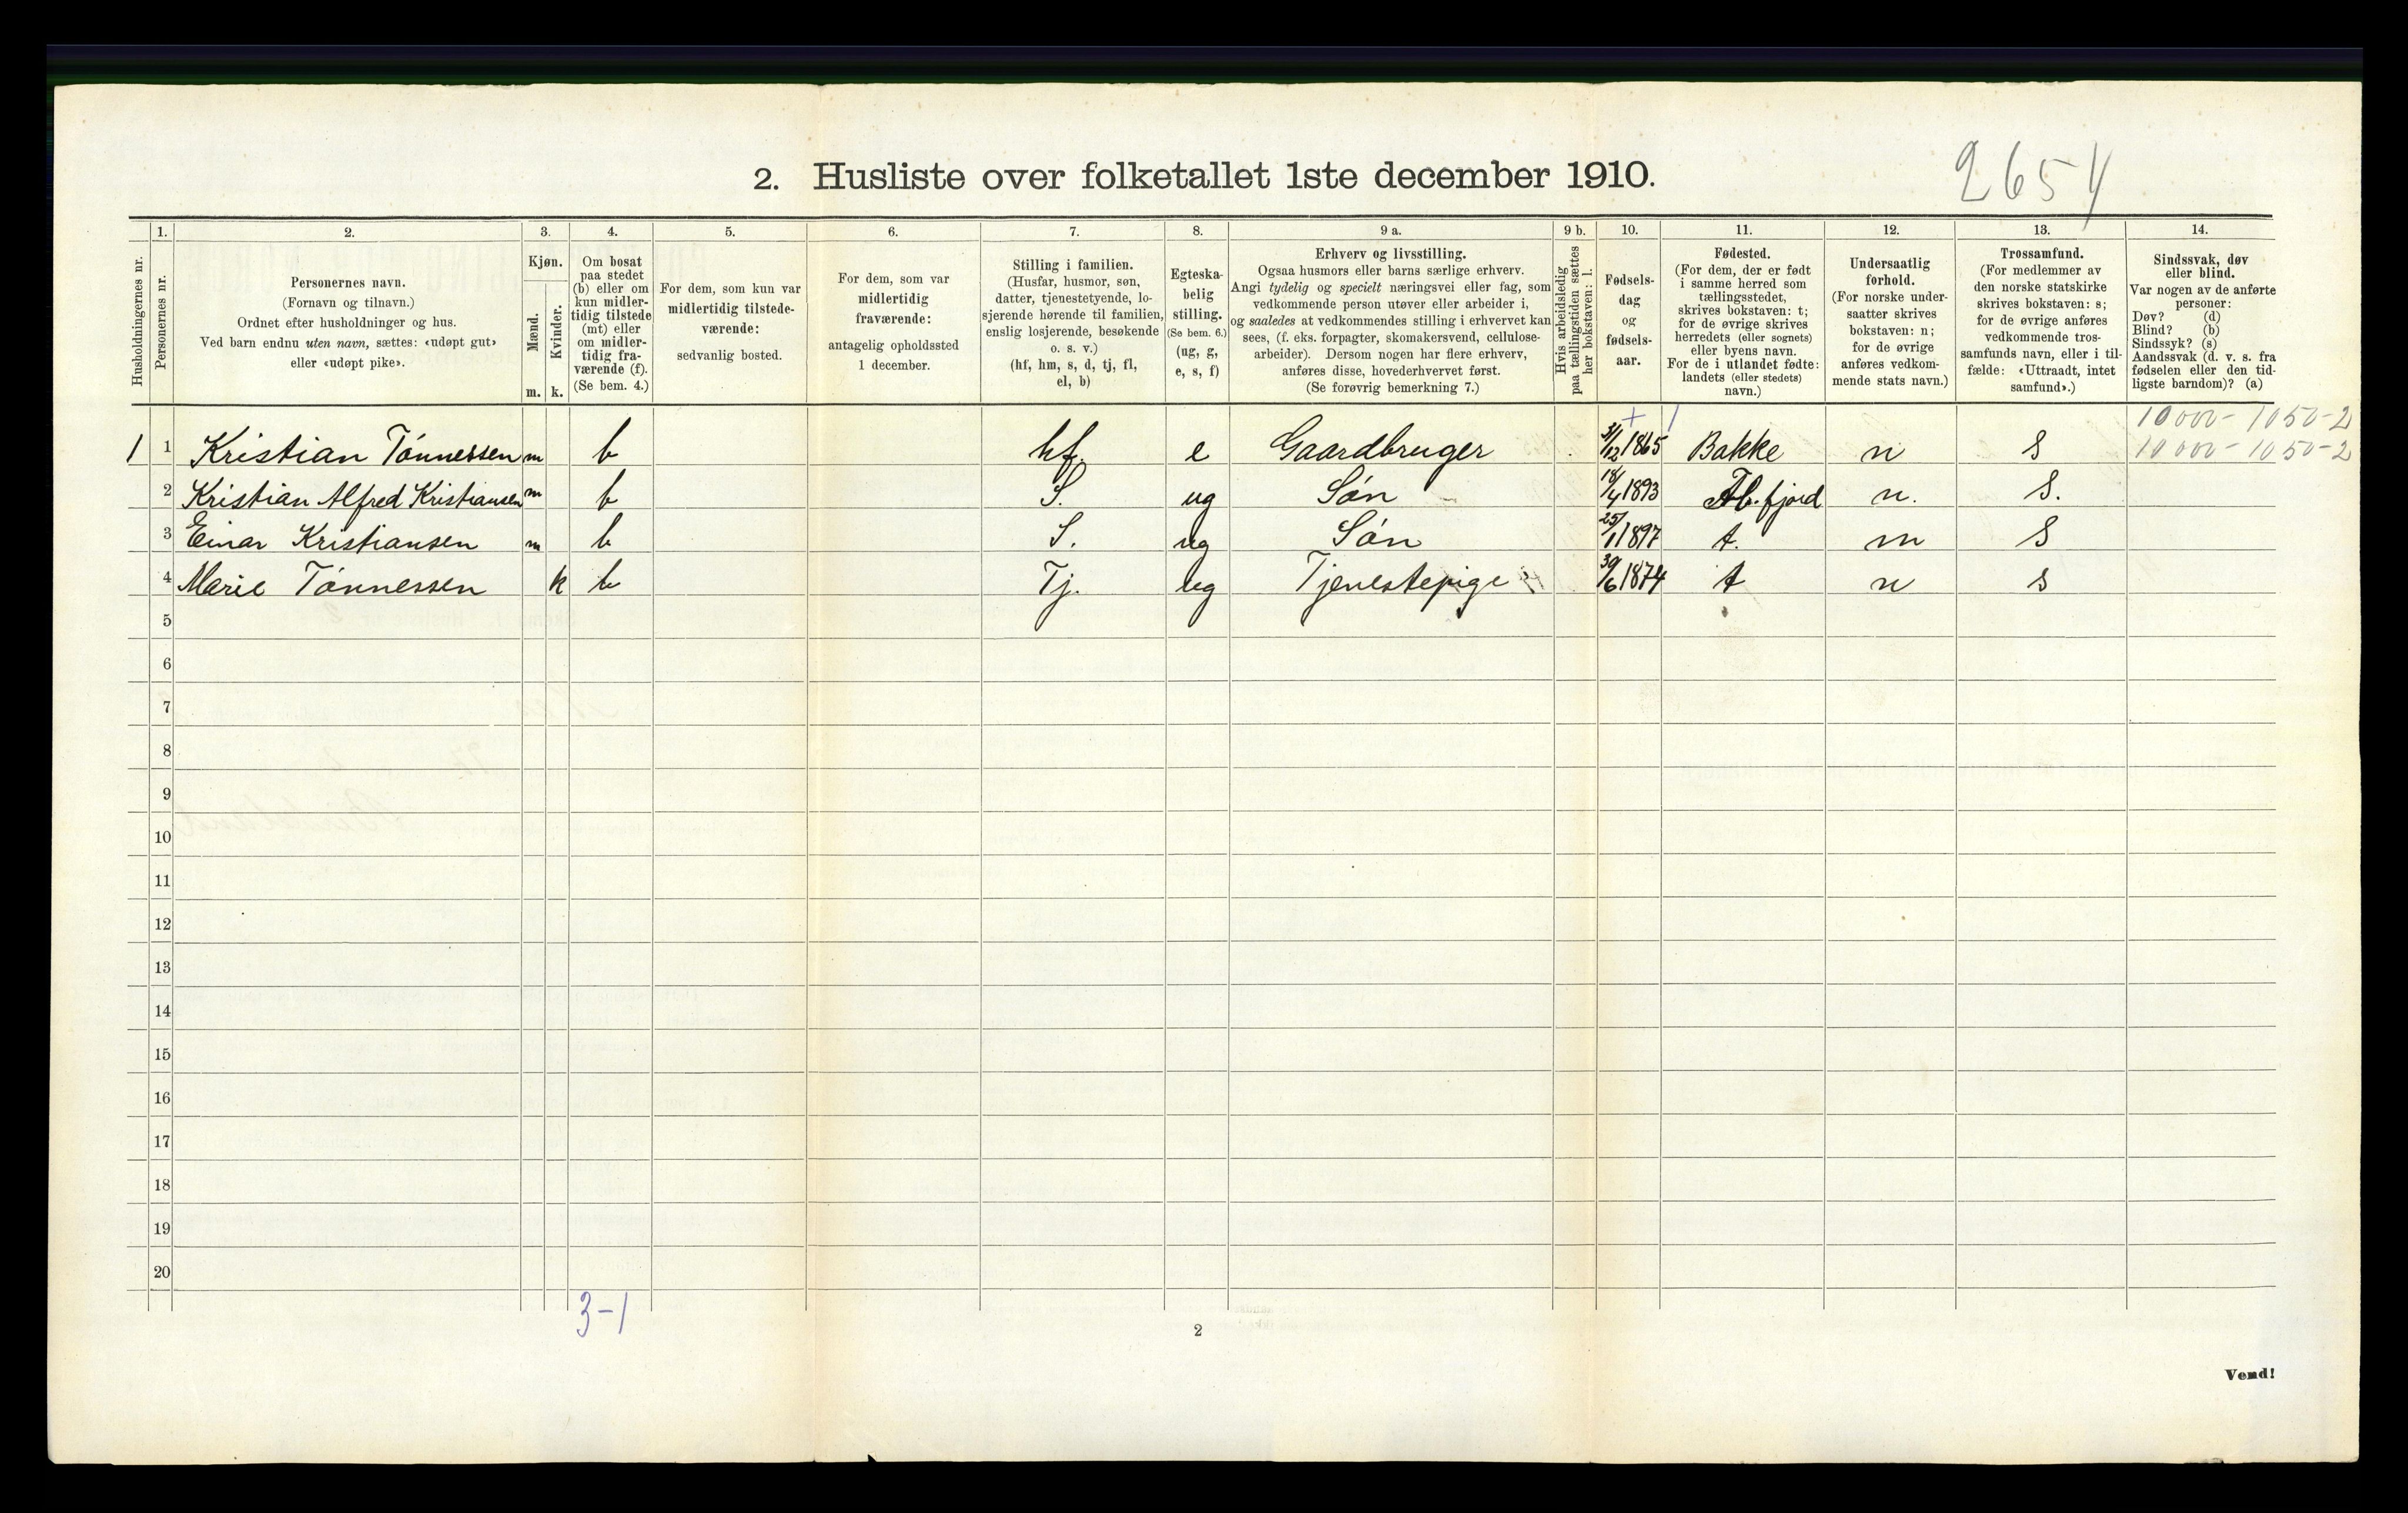 2. Husliste over folketallet 1ste december 1910.
2654
Husholdningernes nr.
1.
Personernes nr.
2.
Personernes navn.
(Fornavn og tilnavn.)
Ordnet efter husholdninger og hus.
Ved barn endnu uten navn, sættes: «udøpt gut»
eller «udøpt pike».
3.
Kjøn.
Mænd.
Kvinder.
m. k.
4.
Om bosat
paa stedet
(b) eller om
kun midler-
tidig tilstede
(mt) eller
om midler-
tidig fra-
værende (f).
(Se bem. 4.)
5.
For dem, som kun var
midlertidig tilstede-
værende:
sedvanlig bosted.
6.
For dem, som var
midlertidig
fraværende:
antagelig opholdssted
1 december.
7.
Stilling i familien.
(Husfar, husmor, søn,
datter, tjenestetyende, lo-
sjerende hørende til familien,
enslig losjerende, besøkende
o. s. v.)
(hf, hm, s, d, tj, fl,
el, b)
8.
Egteska-
belig
stilling.
(Se bem. 6.)
(ug, g,
e, s, f)
9 a.
Erhverv og livsstilling.
Ogsaa husmors eller barns særlige erhverv.
Angi tydelig og specielt næringsvei eller fag, som
vedkommende person utøver eller arbeider i,
og saaledes at vedkommendes stilling i erhvervet kan
sees, (f. eks. forpagter, skomakersvend, cellulose-
arbeider). Dersom nogen har flere erhverv,
anføres disse, hovederhvervet først.
(Se forøvrig bemerkning 7.)
9 b.
Hvis arbeidsledig
paa tællingstiden sættes
her bokstaven: l.
10.
Fødsels-
dag
og
fødsels-
aar.
11.
Fødested.
(For dem, der er født
i samme herred som
tællingsstedet,
skrives bokstaven: t;
for de øvrige skrives
herredets (eller sognets)
eller byens navn.
For de i utlandet fødte:
landets (eller stedets)
navn.)
12.
Undersaatlig
forhold.
(For norske under-
saatter skrives
bokstaven: n;
for de øvrige
anføres vedkom-
mende stats navn.)
13.
Trossamfund.
(For medlemmer av
den norske statskirke
skrives bokstaven: s;
for de øvrige anføres
vedkommende tros-
samfunds navn, eller i til-
fælde: «Uttraadt, intet
samfund».)
14.
Sindssvak, døv
eller blind.
Var nogen av de anførte
personer:
Døv? (d)
Blind? (b)
Sindssyk? (s)
Aandssvak (d. v. s. fra
fødselen eller den tid-
ligste barndom)? (a)
10000 - 1050-2
1 1 Kristian Tönnessen m b hf. e Gaardbruger 31/12 1865 Bakke n S 10000 - 1050-2
2 Kristian Alfred Kristiansen m b S. ug Sön 18/4 1893 fjord n. S.
3 Einar Kristiansen m b S. ug Sön 25/1 1897 t. n S
4 Marie Tönnessen k b Tj. ug Tjenestepige 30/6 1874 t n s
5
6
7
8
9
10
11
12
13
14
15
16
17
18
19
20
3-1
2
Vend!